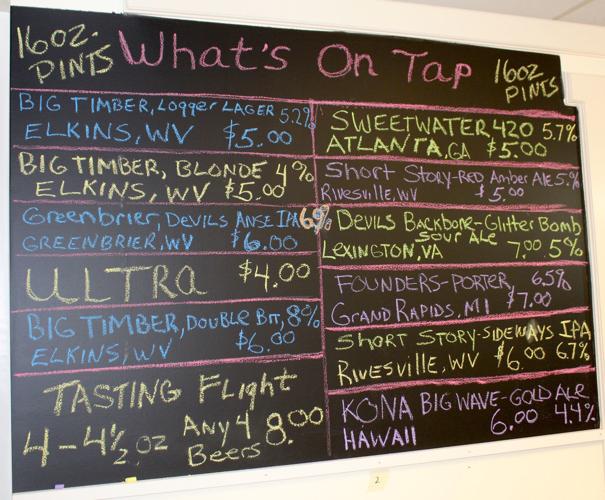 16oz. PINTS
What's On Tap
16oz PINTS
BIG TIMBER, Logger LAGER 5.2%
ELKINS, WV $5.00
BIG TIMBER, BLONDE 4%
ELKINS, WV $5.00
Greenbrier, Devils Anse IPA 6%
GREENBRIER, WV $6.00
ULTRA $4.00
BIG TIMBER, Double Bit, 8%
ELKINS, WV $6.00
TASTING Flight
4-4½ oz Any 4 Beers 8.00
SWEETWATER, 420 5.7%
ATLANTA, GA $5.00
Short Story-RED Amber Ale 5%
Rivesville, WV $5.00
Devils Backbone-Glitter Bomb
Sour Ale
Lexington, VA 7.00 5%
FOUNDERS-PORTER, 6.5%
GRAND RAPIDS, MI $7.00
Short Story-SIDEWAYS IPA
Rivesville, WV $6.00 6.7%
KONA BIG WAVE-GOLD Ale
HAWAII 6.00 4.4%
2